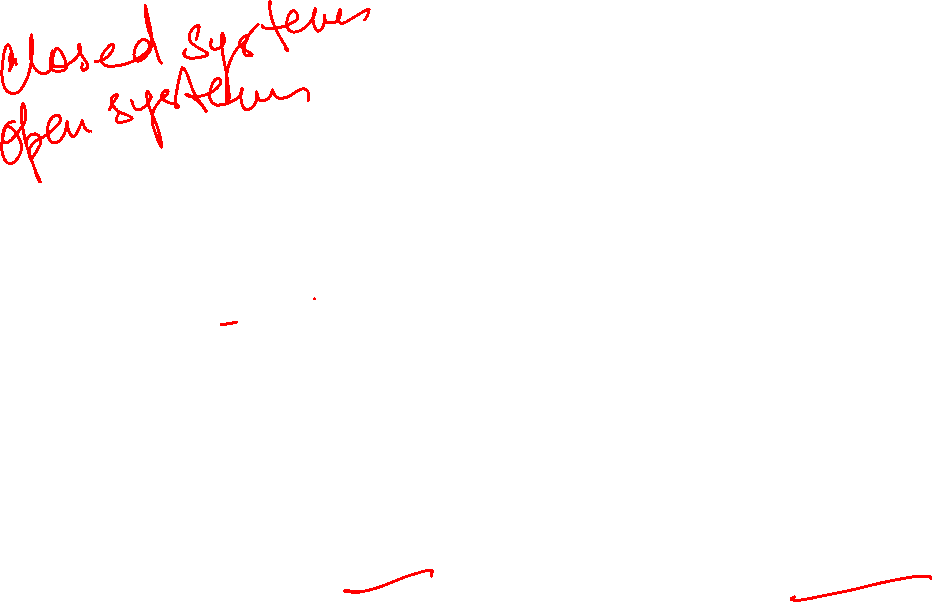 closed system
open system